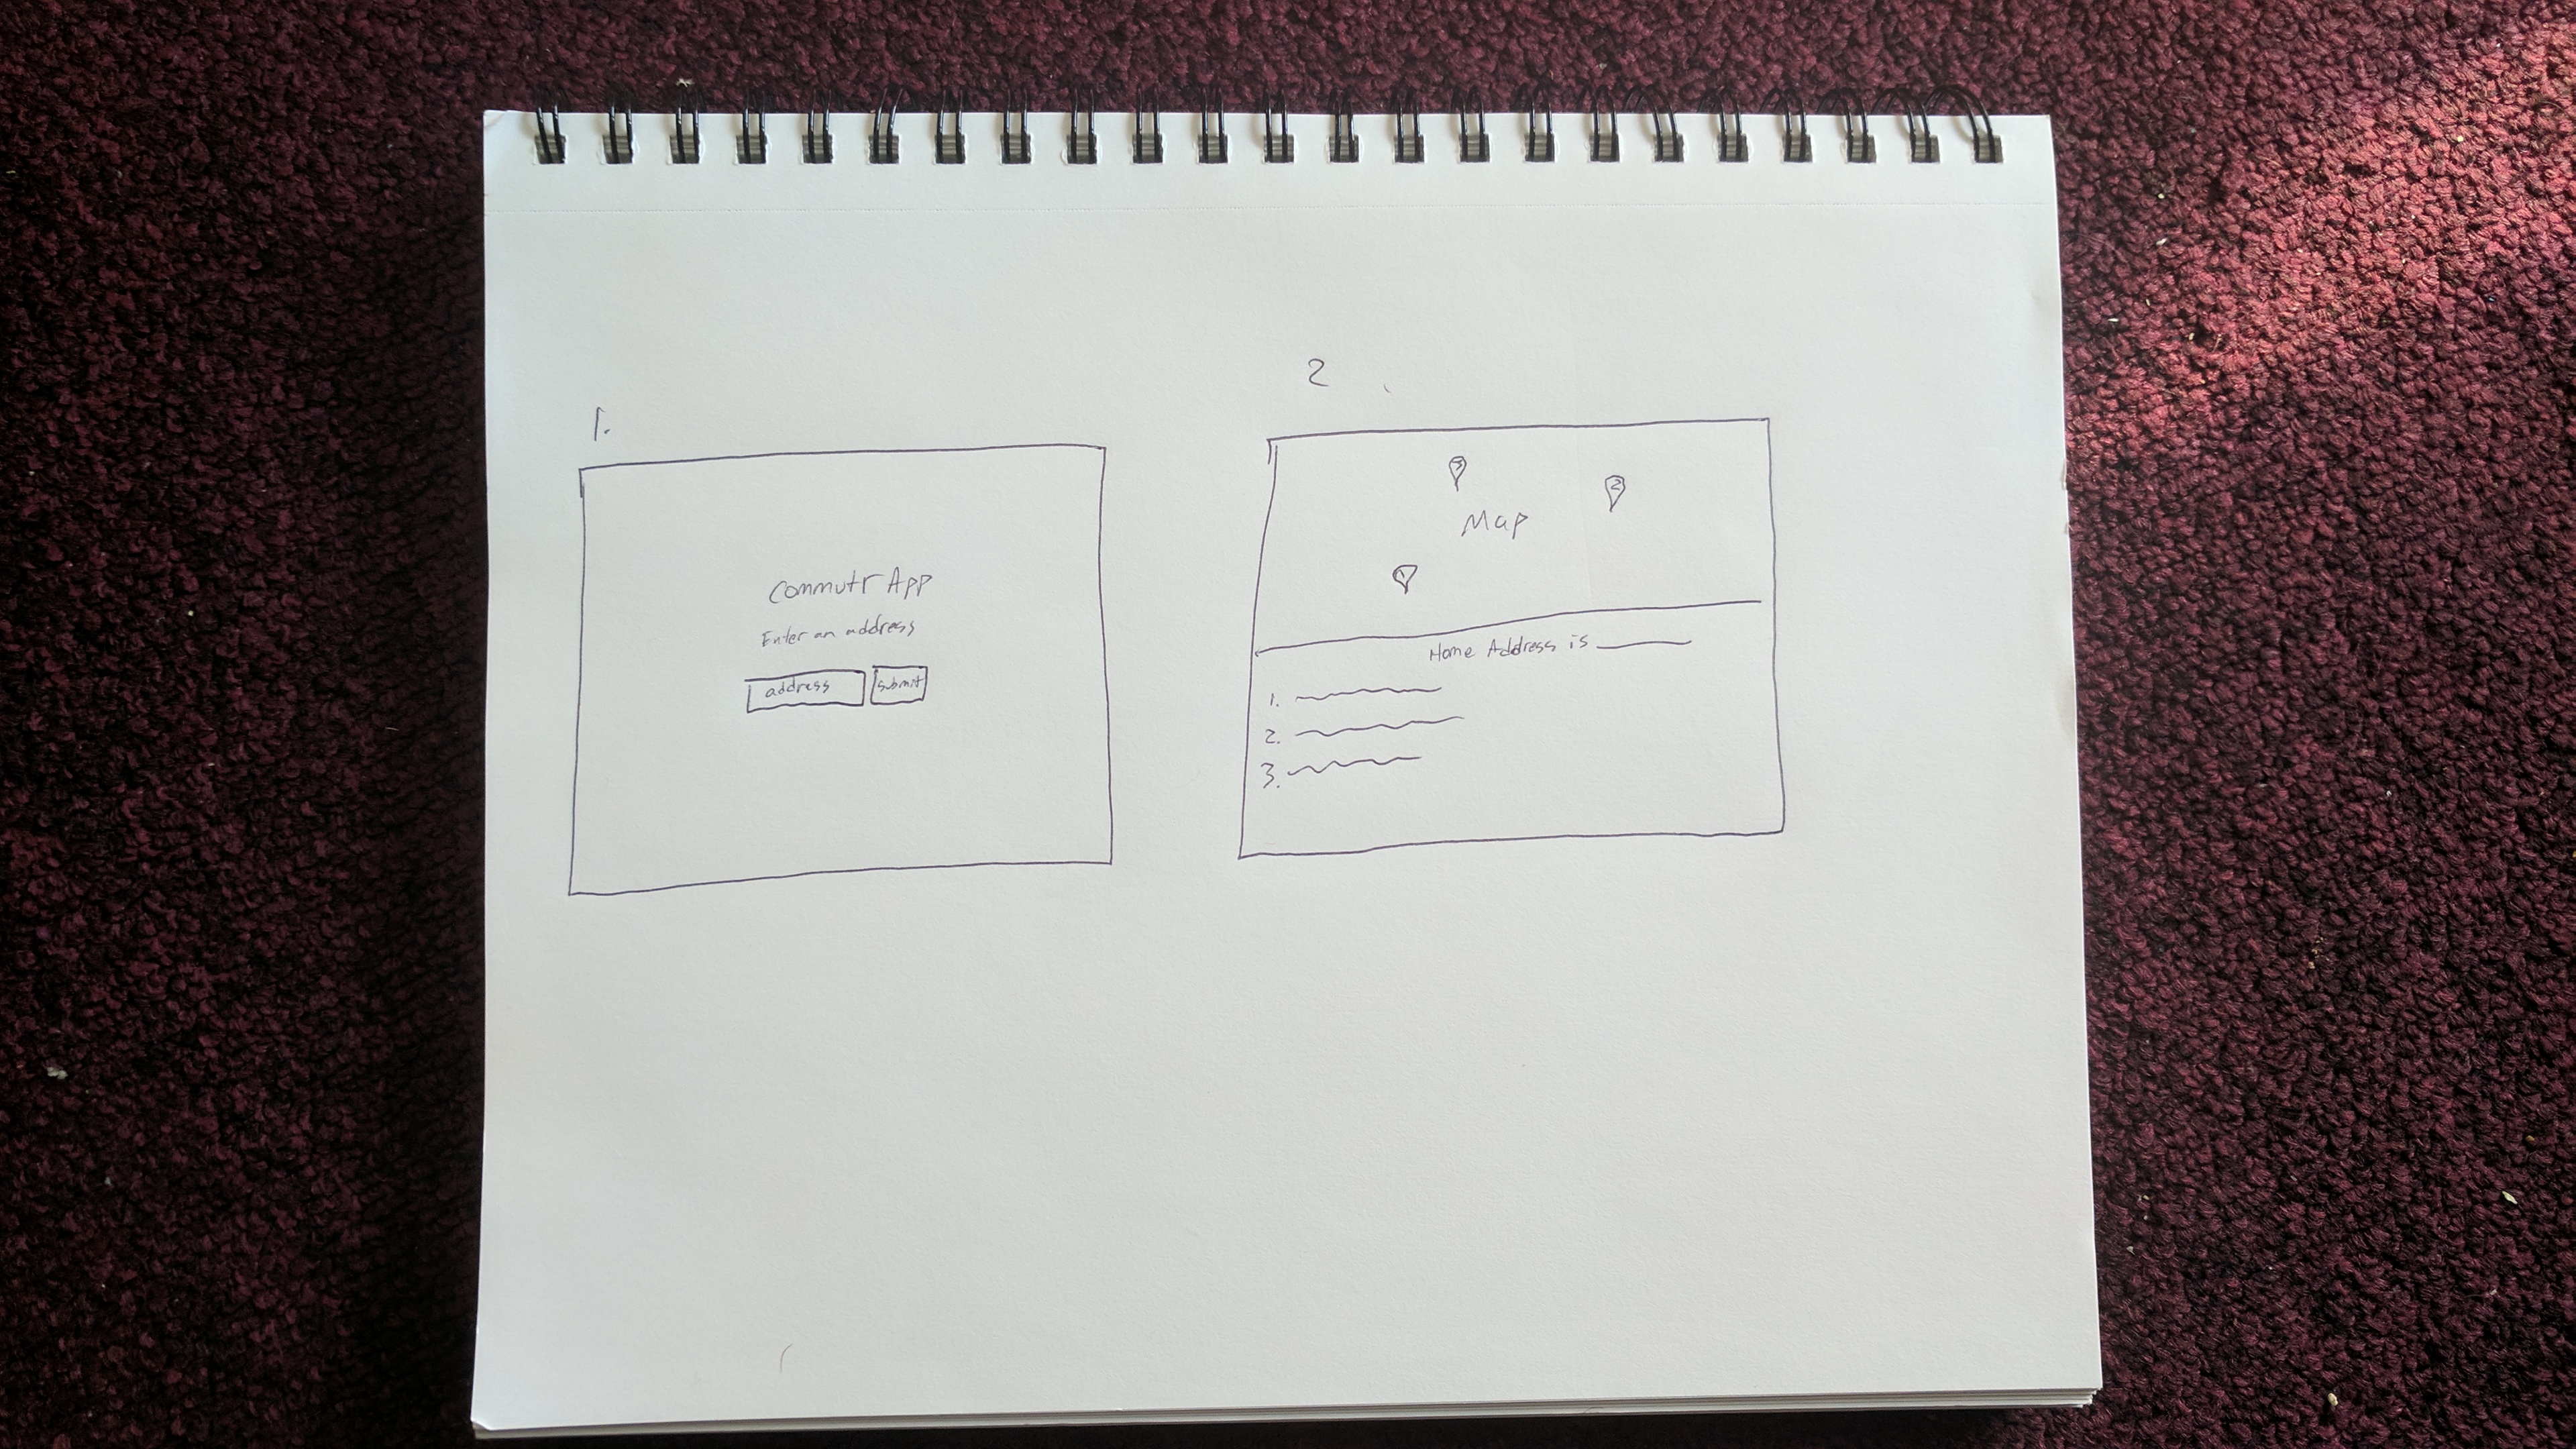 1.
Commutr App
Enter an address
address submit
2
3
2
Map
1
Home Address is
1.
2.
3.